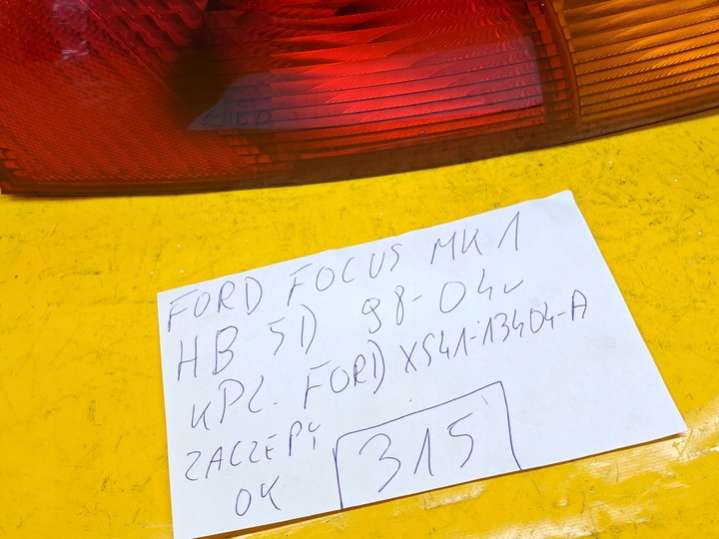 FORD FOCUS MK1
HB 5D 98-04r
KPL. FORD XS41-13404-A
ZACZEPY
OK 315